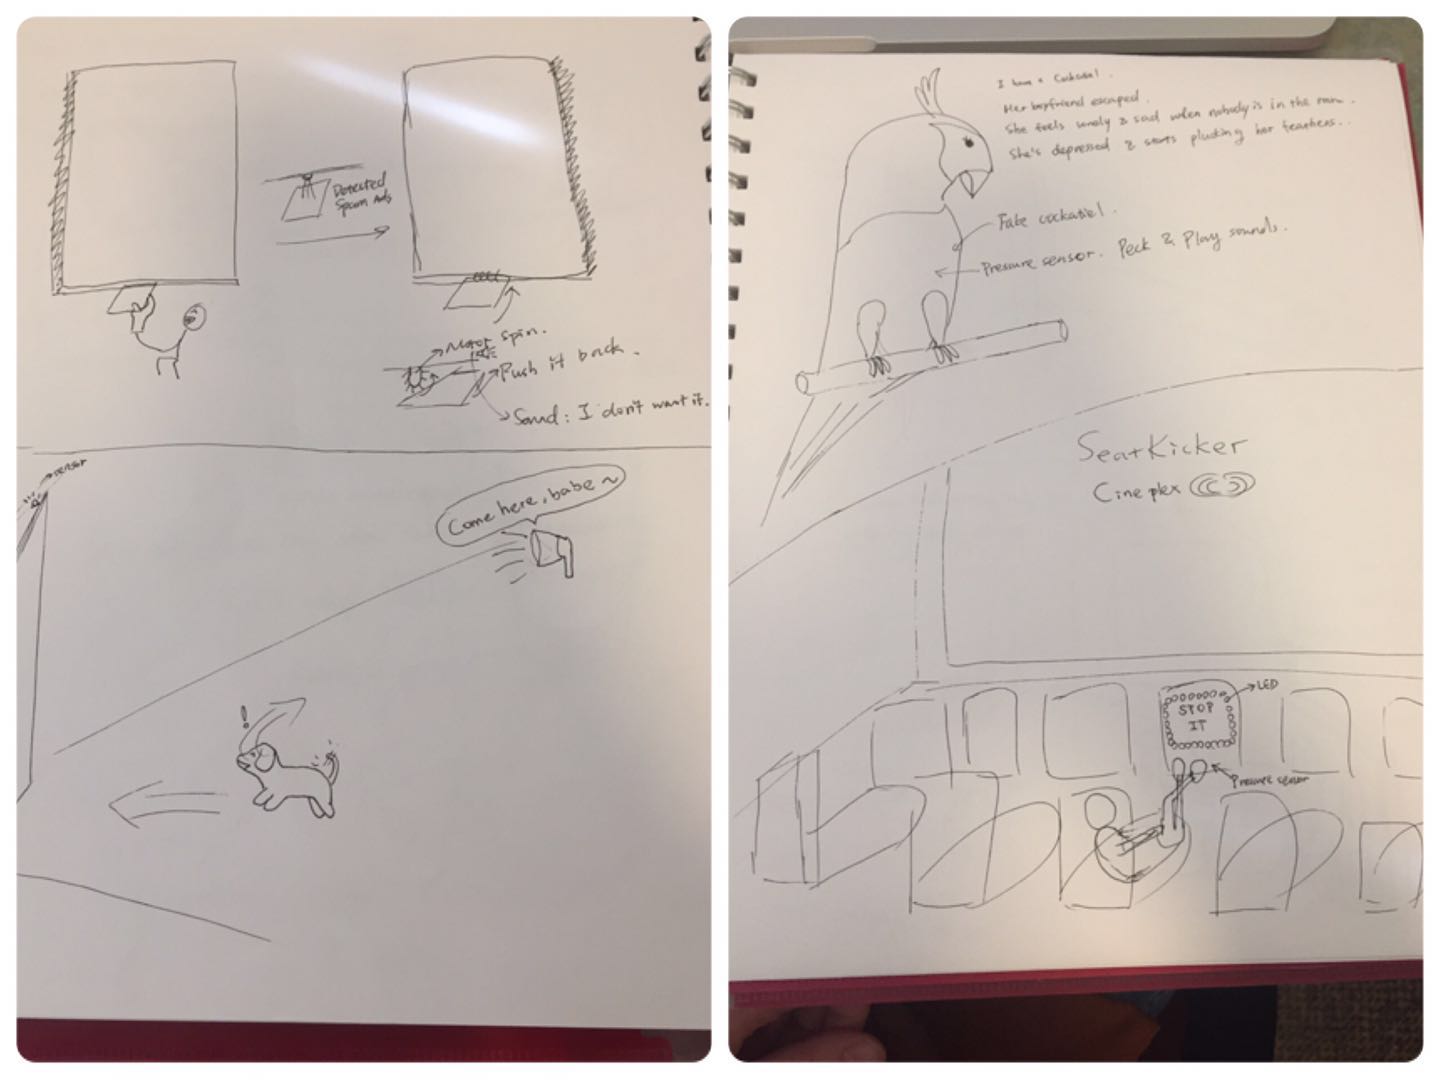 Detected
Spam Ads
Motor spin.
Push it back.
Sound: I don't want it.
sensor
Come here, babe~
!
I have a Cockatiel.
Her boyfriend escaped.
She feels lonely & sad when nobody is in the room.
She's depressed & starts plucking her feathers..
Fake cockatiel.
Pressure sensor. Peck & Play sounds.
SeatKicker
Cineplex
LED
STOP
IT
Pressure sensor